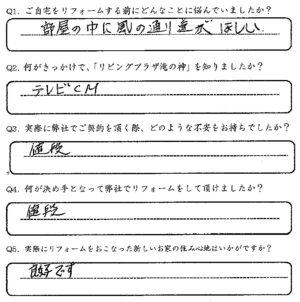 Q1. ご自宅をリフォームする前にどんなことに悩んでいましたか？
部屋の中に風の通り道がほしい
Q2. 何がきっかけで、「リビングプラザ滝の神」を知りましたか？
テレビCM
Q3. 実際に弊社でご契約を頂く際、どのような不安をお持ちでしたか？
値段
Q4. 何が決め手となって弊社でリフォームをして頂けましたか？
値段
Q5. 実際にリフォームをおこなった新しいお家の住み心地はいかがですか？
良好です